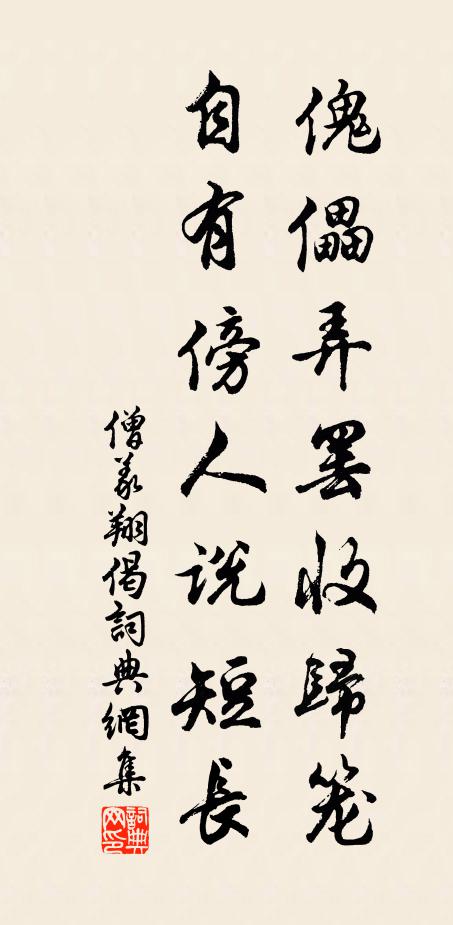 傀儡弄罢收歸笼
自有傍人说短長
僧义翔偈詞典網集
詞典网印